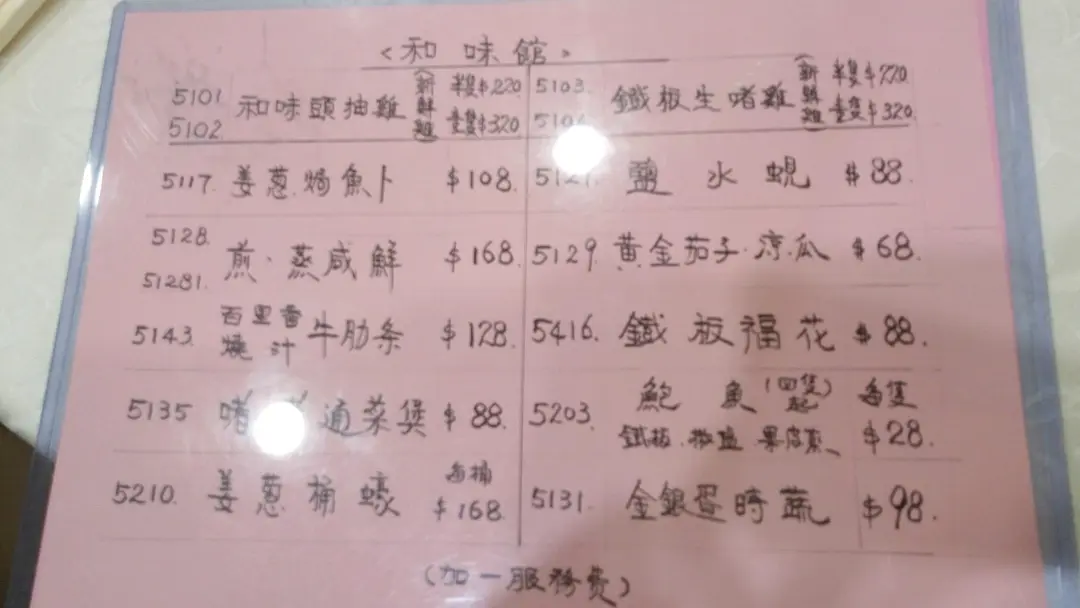 <和味館>
5101 5102 和味頭抽雞 (新鮮雞) 半隻$220 壹隻$320
5103 鐵板生啫雞 (新鮮雞) 半隻$220 壹隻$320
5117. 姜蔥焗魚卜 $108.
鹽水蜆 $88.
5128. 51281. 煎·蒸咸鮮 $168.
5129. 黄金茄子·涼瓜 $68.
5143. 百里香燒汁牛肋条 $128.
5416. 鐵板福花 $88.
5135 啫 通菜煲 $88.
5203. 鮑魚(四隻起) 每隻 $28.
鐵板·椒鹽 果皮蒸
5210. 姜蔥桶蠔 每桶 $168.
5131. 金銀蛋時蔬 $98.
(加一服務費)